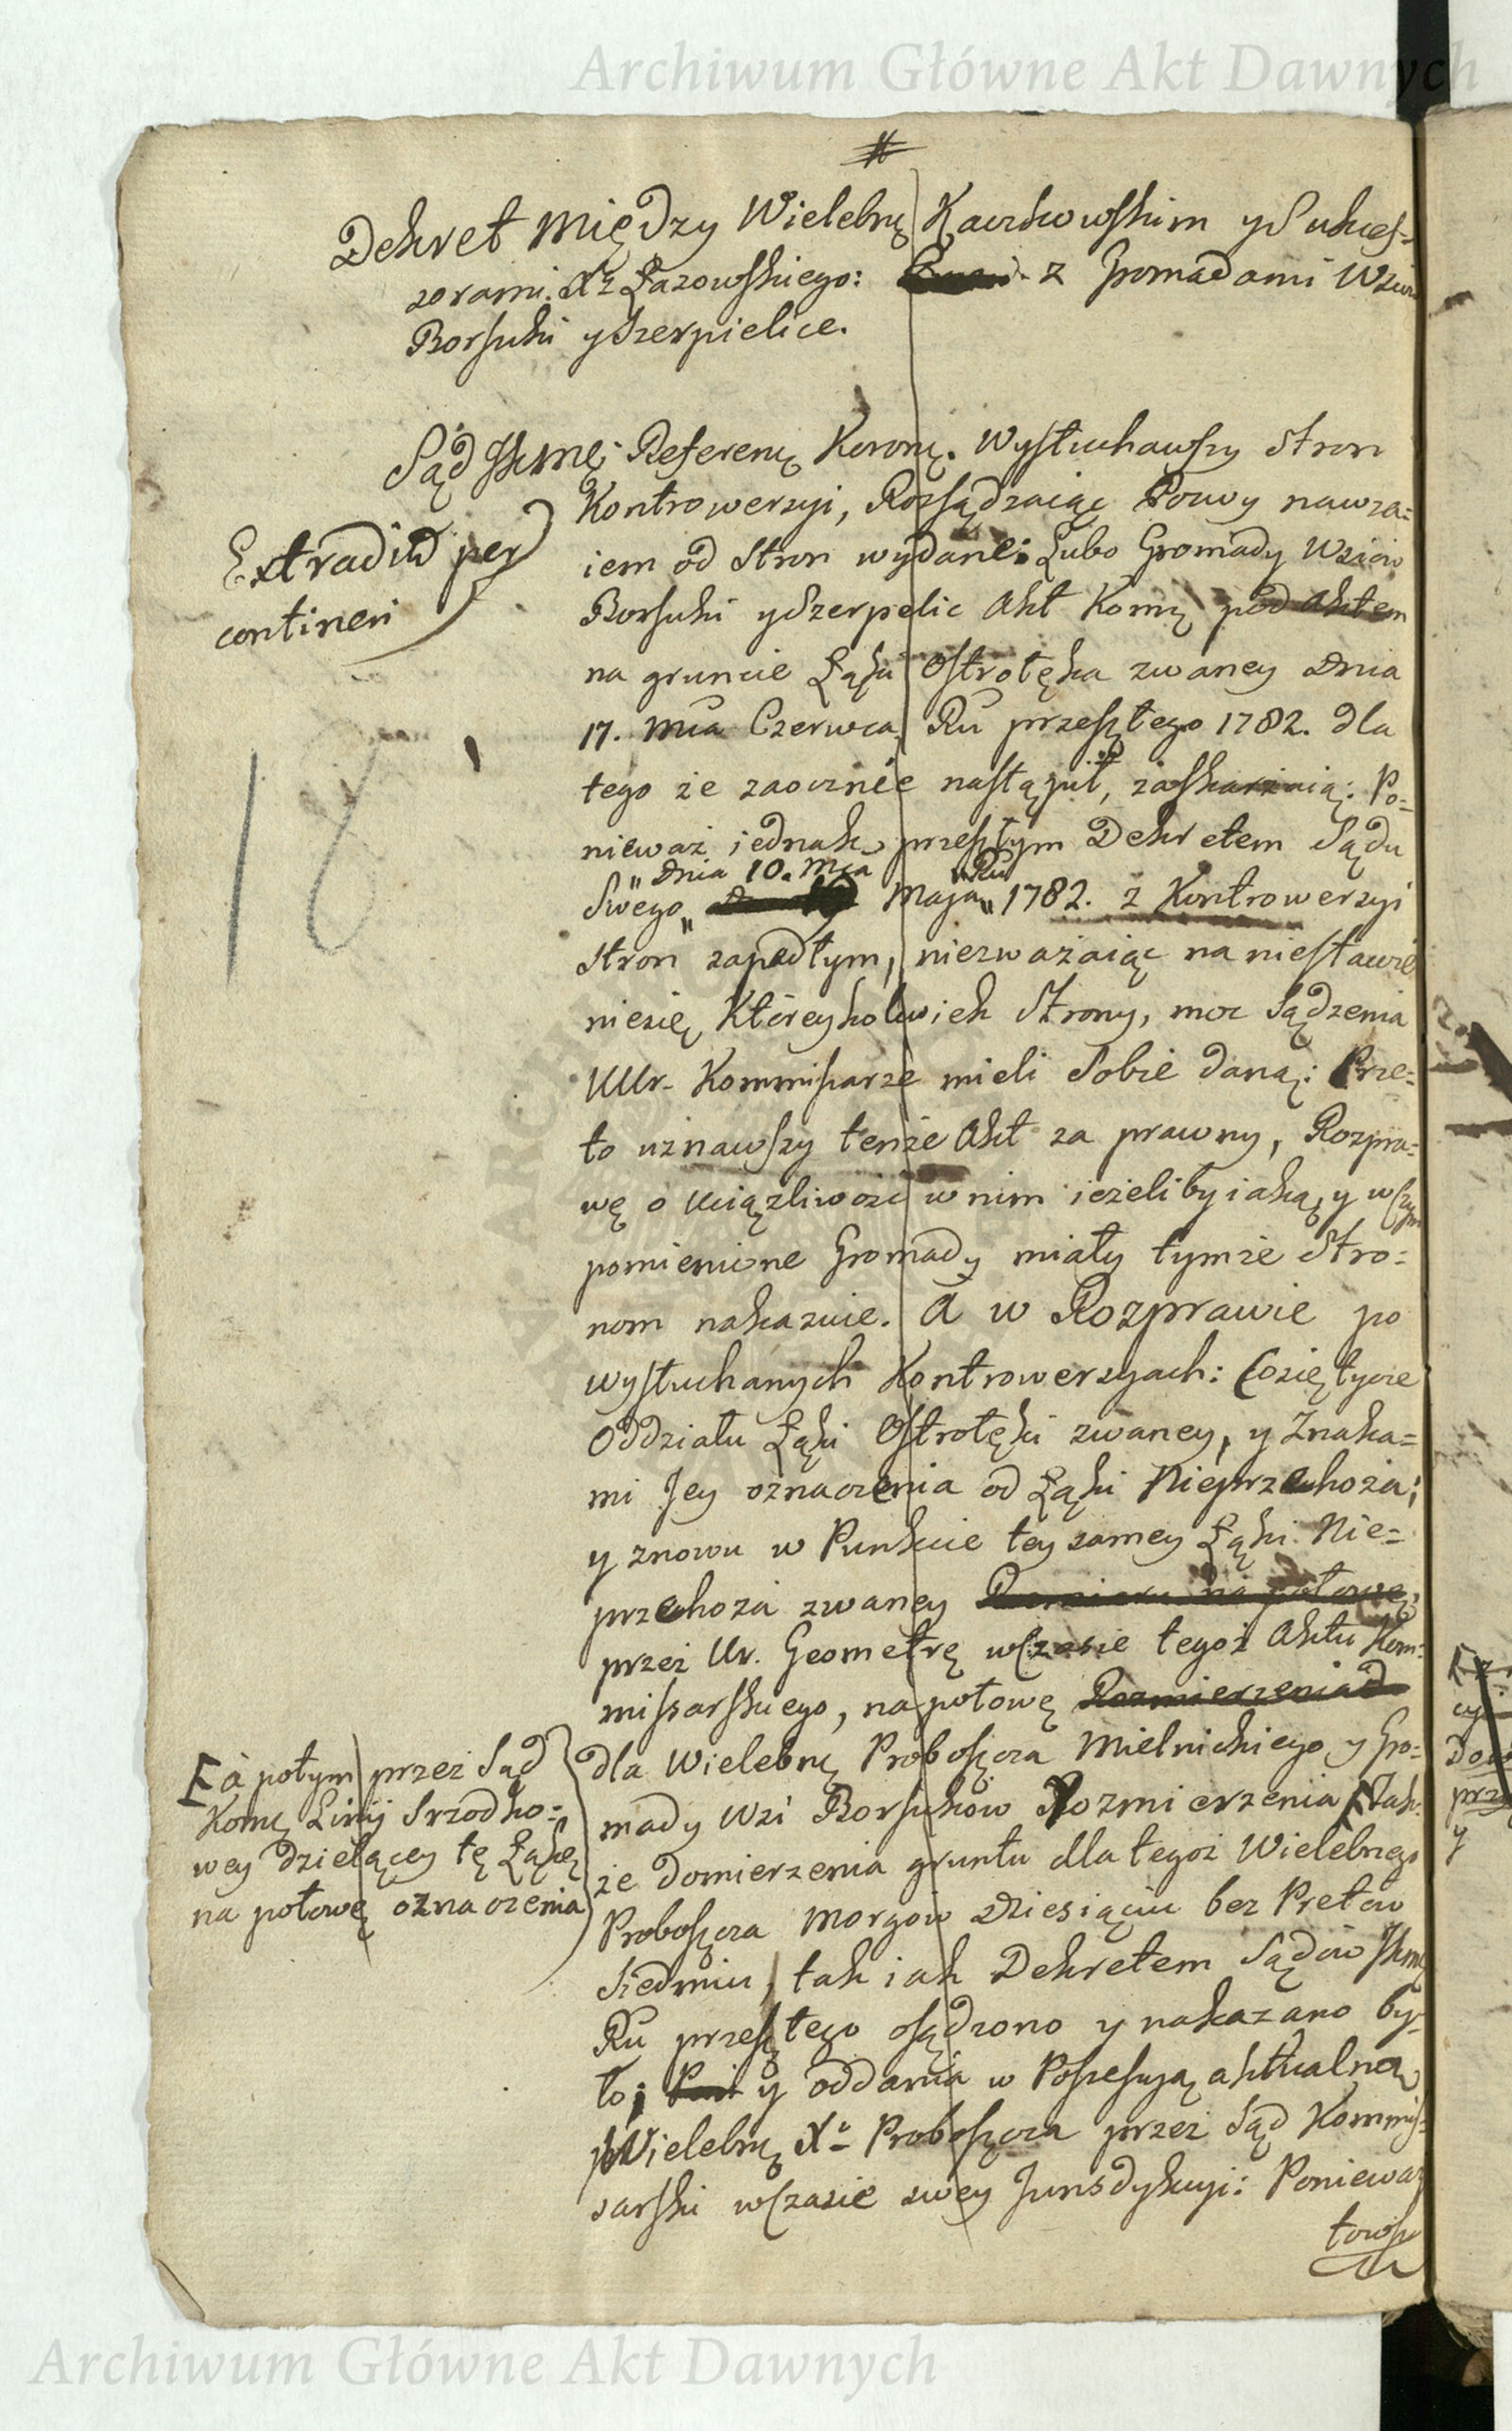 Archiwum Główne Akt Dawnych
#
Dekret Między Wielebnę Kaczkowskim y Sukces=
sorami Xa Łazowskiego: z Gromadami Wsiów
Borsuki y Szerpielice.
Sąd Referenę Koronę. Wysłuchawszy Stron
Kontrowerzyi, Rozsądzaiąc Pozwy nawza=
iem od Stron wydane: Lubo Gromady Wsiów
Borsuki y Szerpelic Akt Komę pod Aktem
na gruncie Łąki Ostrołęka zwaney Dnia
17. Mca Czerwca Ru przeszłego 1782. dla
tego że zaocznie nastąpił, zaskarżaią: Po=
nieważ iednak przeszłym Dekretem Sądu
Dnia 10. Mca
Ru
Swego Maja 1782. z Kontrowerzyi
Stron zapadłym, niezważaiąc na niestawie
niesię Któreykolwiek Strony, moc Sądzenia
UUr. Kommissarze mieli Sobie daną: Prze=
to uznawszy tenże Akt za prawny, Rozpra=
wę o uciążliwość w nim ieżeliby iaką, y w czym
pomienione Gromady miały tymże Stro=
nom nakazuie. A w Rozprawie po
wysłuchanych Kontrowerzyach: Cosię tycze
Oddziału Łąki Ostrołęki zwaney, y Znaka=
mi Jey oznaczenia od Łąki Nieprzechoża;
y znowu w Punkcie tey samey Łąki Nie=
przechoża zwaney Rozmiaru na połowę,
przez Ur. Geometrę w czasie tegoż Aktu Kom=
missarskiego, na połowę Rozmierzenia
dla Wielebnę Proboszcza Mielnickiego y Gro=
mady Wsi Borsuków Rozmierzenia [Tak=
że domierzenia gruntu dla tegoż Wielebnego
Proboszcza Morgów Dziesiąciu bez Prętów
Siedmiu, tak iak Dekretem Sądów
Ru przeszłego osądzono y nakazano by=
ło; y oddania w Possessyą aktualną
Wielebnę Xa Proboszcza przez Sąd Kommis=
sarski w czasie swey Jurisdykcyi: Ponieważ
towsz
Extradit per
continen
18
[a potym przez Sąd
Komę Linij Srzodko=
wey dzielącey tę Łąkę
na połowę oznaczenia
Archiwum Główne Akt Dawnych